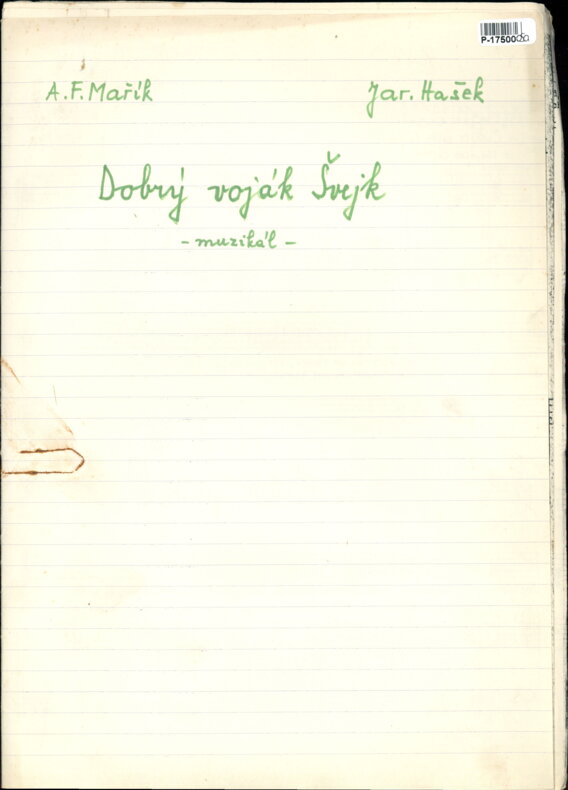 P-17500
A.F. Mařík Jar. Hašek
Dobrý voják Švejk
- muzikál -